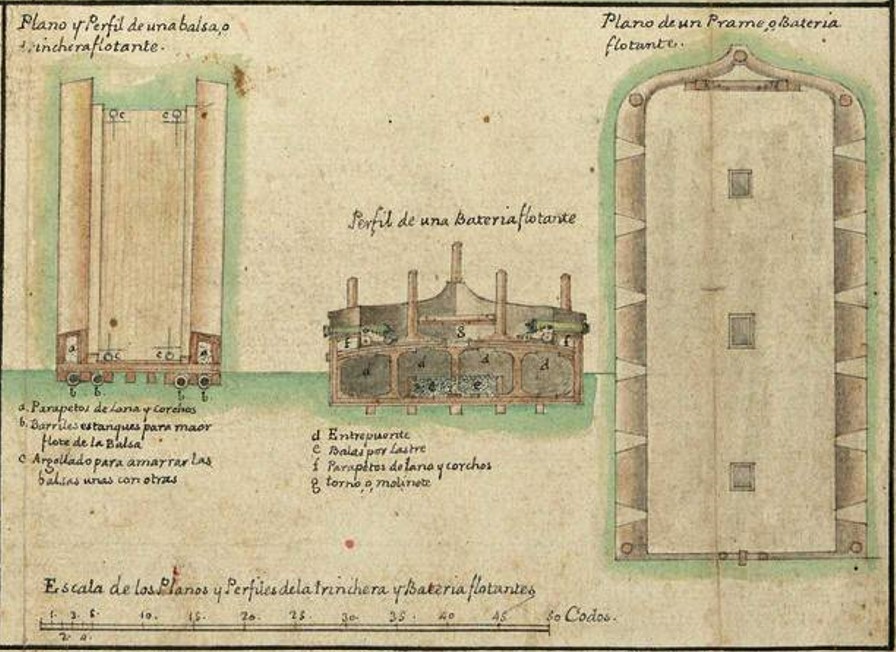 Plano y Perfil de una balsa, o
trinchera flotante.
a
a
c
c
c
c
b
b
b
b
a. Parapetos de Lana y corchos
b. Barriles estanques para maor
flote de la Balsa
c Argollado para amarrar las
balsas unas con otras
Perfil de una Bateria flotante
f
g
f
d
d
d
d
e
e
d Entrepuente
e Balas por Lastre
f Parapetos de lana y corchos
g torno, o, molinete
Plano de un Prame, o, Bateria
flotante.
Escala de los Planos y Perfiles de la trinchera y Bateria flotantes
1. 3. 5. 10. 15. 20. 25. 30. 35. 40 45 50 Codos.
2. 4.